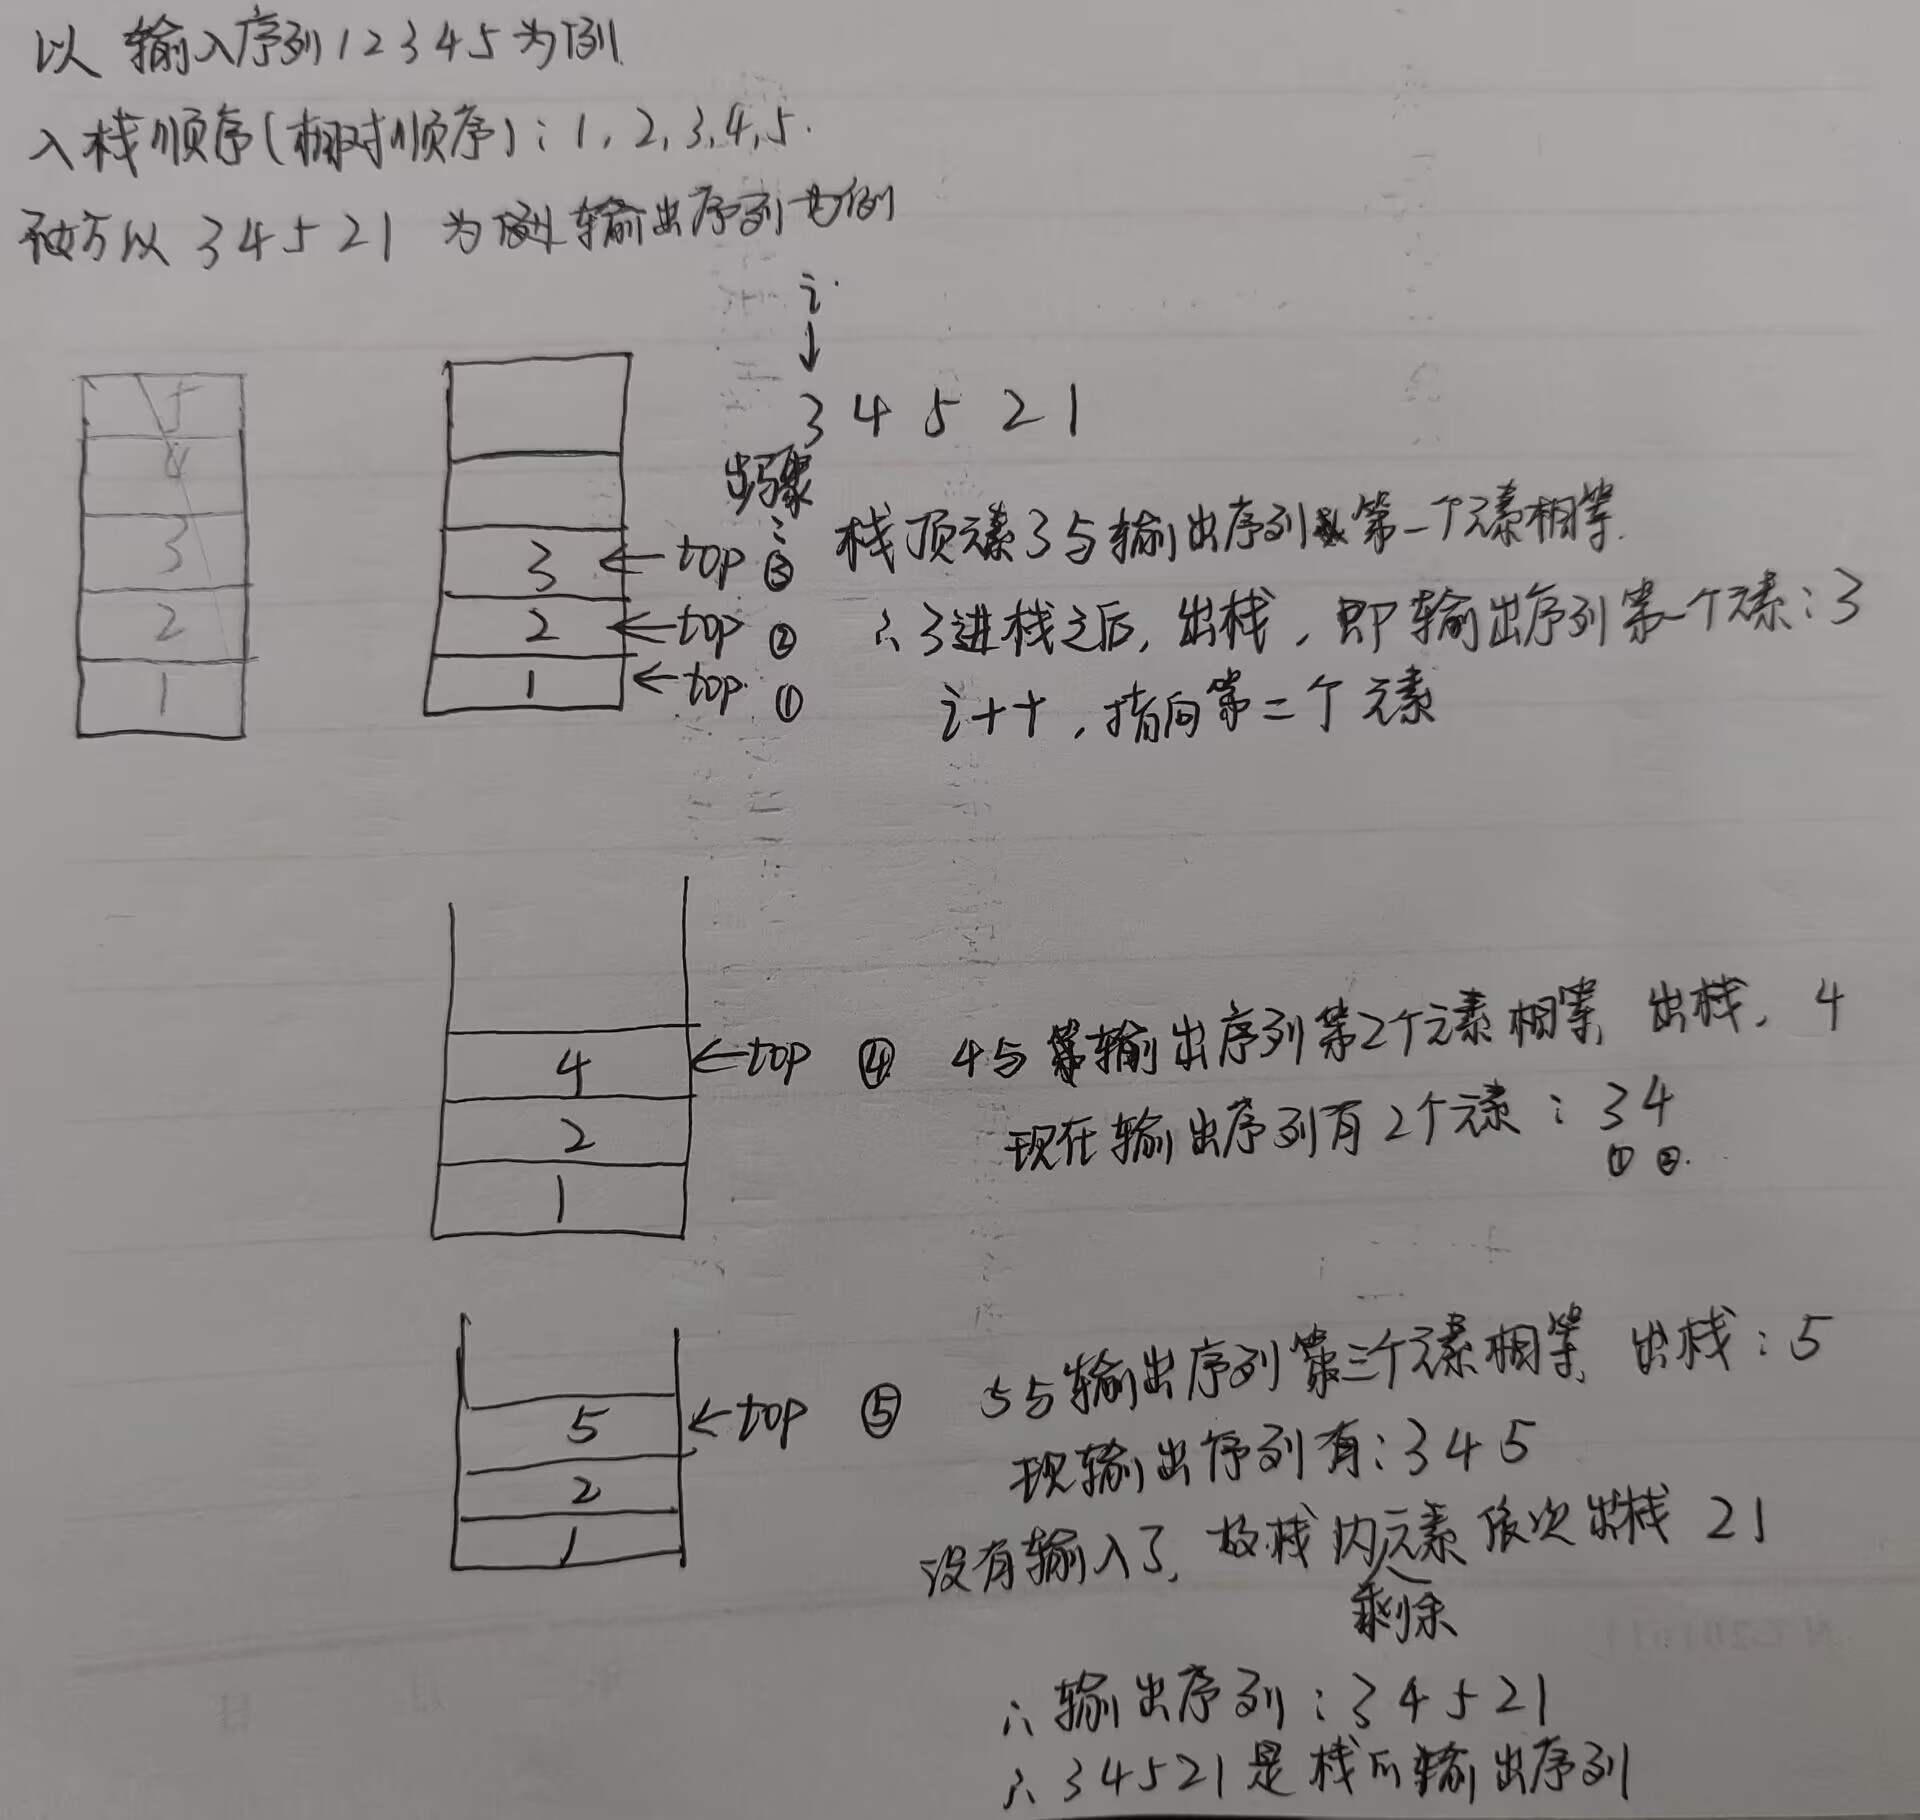 以输入序列12345为例
入栈顺序(相对顺序):1,2,3,4,5.
以34521为输出序列为例
i
34521
步骤:
5
4
3
2
1
3 ←top ③ 栈顶元素3与输出序列第一个元素相等.
2 ←top ② ∴3进栈之后,出栈,即输出序列第一个元素:3
1 ←top ① i++,指向第二个元素
4 ←top ④ 4与输出序列第2个元素相等,出栈,4
2 现在输出序列有2个元素:34
① ②.
1
5 ←top ⑤ 5与输出序列第三个元素相等,出栈:5
2 现输出序列有:345
1 没有输入了,故栈内元素依次出栈21
剩余
∴输出序列:34521
∴34521是栈的输出序列